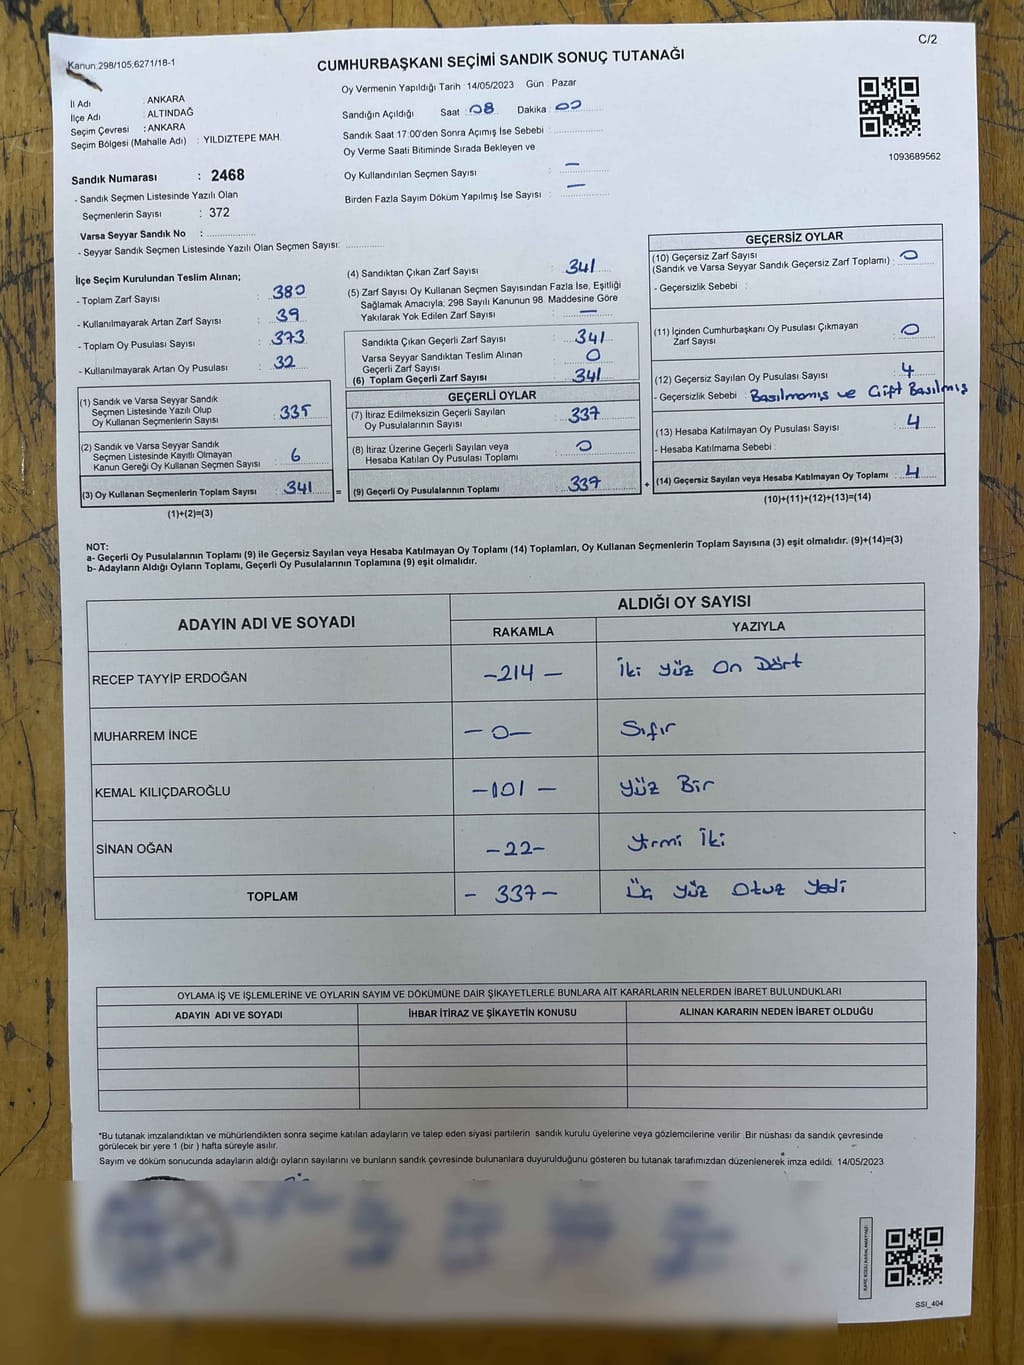 C/2
Kanun:298/105,6271/18-1
CUMHURBAŞKANI SEÇİMİ SANDIK SONUÇ TUTANAĞI
Oy Vermenin Yapıldığı Tarih : 14/05/2023 Gün : Pazar
İl Adı : ANKARA
İlçe Adı : ALTINDAĞ
Seçim Çevresi : ANKARA
Seçim Bölgesi (Mahalle Adı) : YILDIZTEPE MAH.
Sandığın Açıldığı Saat : 08 Dakika : 00
Sandık Saat 17:00'den Sonra Açımış İse Sebebi :
Oy Verme Saati Bitiminde Sırada Bekleyen ve
Oy Kullandırılan Seçmen Sayısı : —
Birden Fazla Sayım Döküm Yapılmış İse Sayısı : —
1093689562
Sandık Numarası : 2468
- Sandık Seçmen Listesinde Yazılı Olan
Seçmenlerin Sayısı : 372
Varsa Seyyar Sandık No :
- Seyyar Sandık Seçmen Listesinde Yazılı Olan Seçmen Sayısı:
İlçe Seçim Kurulundan Teslim Alınan;
- Toplam Zarf Sayısı : 380
- Kullanılmayarak Artan Zarf Sayısı : 39
- Toplam Oy Pusulası Sayısı : 373
- Kullanılmayarak Artan Oy Pusulası : 32
(1) Sandık ve Varsa Seyyar Sandık
Seçmen Listesinde Yazılı Olup
Oy Kullanan Seçmenlerin Sayısı : 335
(2) Sandık ve Varsa Seyyar Sandık
Seçmen Listesinde Kayıtlı Olmayan
Kanun Gereği Oy Kullanan Seçmen Sayısı : 6
(3) Oy Kullanan Seçmenlerin Toplam Sayısı : 341 =
(1)+(2)=(3)
(4) Sandıktan Çıkan Zarf Sayısı : 341
(5) Zarf Sayısı Oy Kullanan Seçmen Sayısından Fazla İse, Eşitliği
Sağlamak Amacıyla; 298 Sayılı Kanunun 98. Maddesine Göre
Yakılarak Yok Edilen Zarf Sayısı : —
Sandıkta Çıkan Geçerli Zarf Sayısı : 341
Varsa Seyyar Sandıktan Teslim Alınan
Geçerli Zarf Sayısı : 0
(6) Toplam Geçerli Zarf Sayısı : 341
GEÇERLİ OYLAR
(7) İtiraz Edilmeksizin Geçerli Sayılan
Oy Pusulalarının Sayısı : 337
(8) İtiraz Üzerine Geçerli Sayılan veya
Hesaba Katılan Oy Pusulası Toplamı : 0
(9) Geçerli Oy Pusulalarının Toplamı : 337 +
GEÇERSİZ OYLAR
(10) Geçersiz Zarf Sayısı
(Sandık ve Varsa Seyyar Sandık Geçersiz Zarf Toplamı) : 0
- Geçersizlik Sebebi :
(11) İçinden Cumhurbaşkanı Oy Pusulası Çıkmayan
Zarf Sayısı : 0
(12) Geçersiz Sayılan Oy Pusulası Sayısı : 4
- Geçersizlik Sebebi : Basılmamış ve Çift Basılmış
(13) Hesaba Katılmayan Oy Pusulası Sayısı : 4
- Hesaba Katılmama Sebebi :
(14) Geçersiz Sayılan veya Hesaba Katılmayan Oy Toplamı : 4
(10)+(11)+(12)+(13)=(14)
NOT:
a- Geçerli Oy Pusulalarının Toplamı (9) ile Geçersiz Sayılan veya Hesaba Katılmayan Oy Toplamı (14) Toplamları, Oy Kullanan Seçmenlerin Toplam Sayısına (3) eşit olmalıdır. (9)+(14)=(3)
b- Adayların Aldığı Oyların Toplamı, Geçerli Oy Pusulalarının Toplamına (9) eşit olmalıdır.
ADAYIN ADI VE SOYADI
ALDIĞI OY SAYISI
RAKAMLA YAZIYLA
RECEP TAYYİP ERDOĞAN -214 - İki yüz On Dört
MUHARREM İNCE - 0 - Sıfır
KEMAL KILIÇDAROĞLU -101 - yüz Bir
SİNAN OĞAN -22- yirmi İki
TOPLAM - 337 - Üç yüz Otuz yedi
OYLAMA İŞ VE İŞLEMLERİNE VE OYLARIN SAYIM VE DÖKÜMÜNE DAİR ŞİKAYETLERLE BUNLARA AİT KARARLARIN NELERDEN İBARET BULUNDUKLARI
ADAYIN ADI VE SOYADI İHBAR İTİRAZ VE ŞİKAYETİN KONUSU ALINAN KARARIN NEDEN İBARET OLDUĞU
*Bu tutanak imzalandıktan ve mühürlendikten sonra seçime katılan adayların ve talep eden siyasi partilerin sandık kurulu üyelerine veya gözlemcilerine verilir. Bir nüshası da sandık çevresinde
görülecek bir yere 1 (bir ) hafta süreyle asılır.
Sayım ve döküm sonucunda adayların aldığı oyların sayılarını ve bunların sandık çevresinde bulunanlara duyurulduğunu gösteren bu tutanak tarafımızdan düzenlenerek imza edildi. 14/05/2023
SSI_404